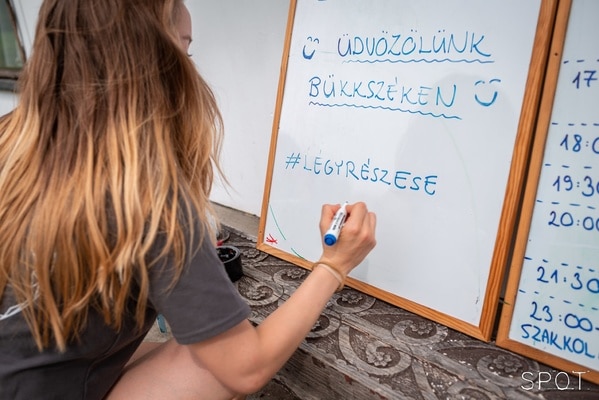 ÜDVÖZÖLÜNK
BÜKKSZÉKEN
#LEGYRÉSZESE
17
18:0
19:30
20:00
21:30
23:00-
SZAKKOL
S P O T